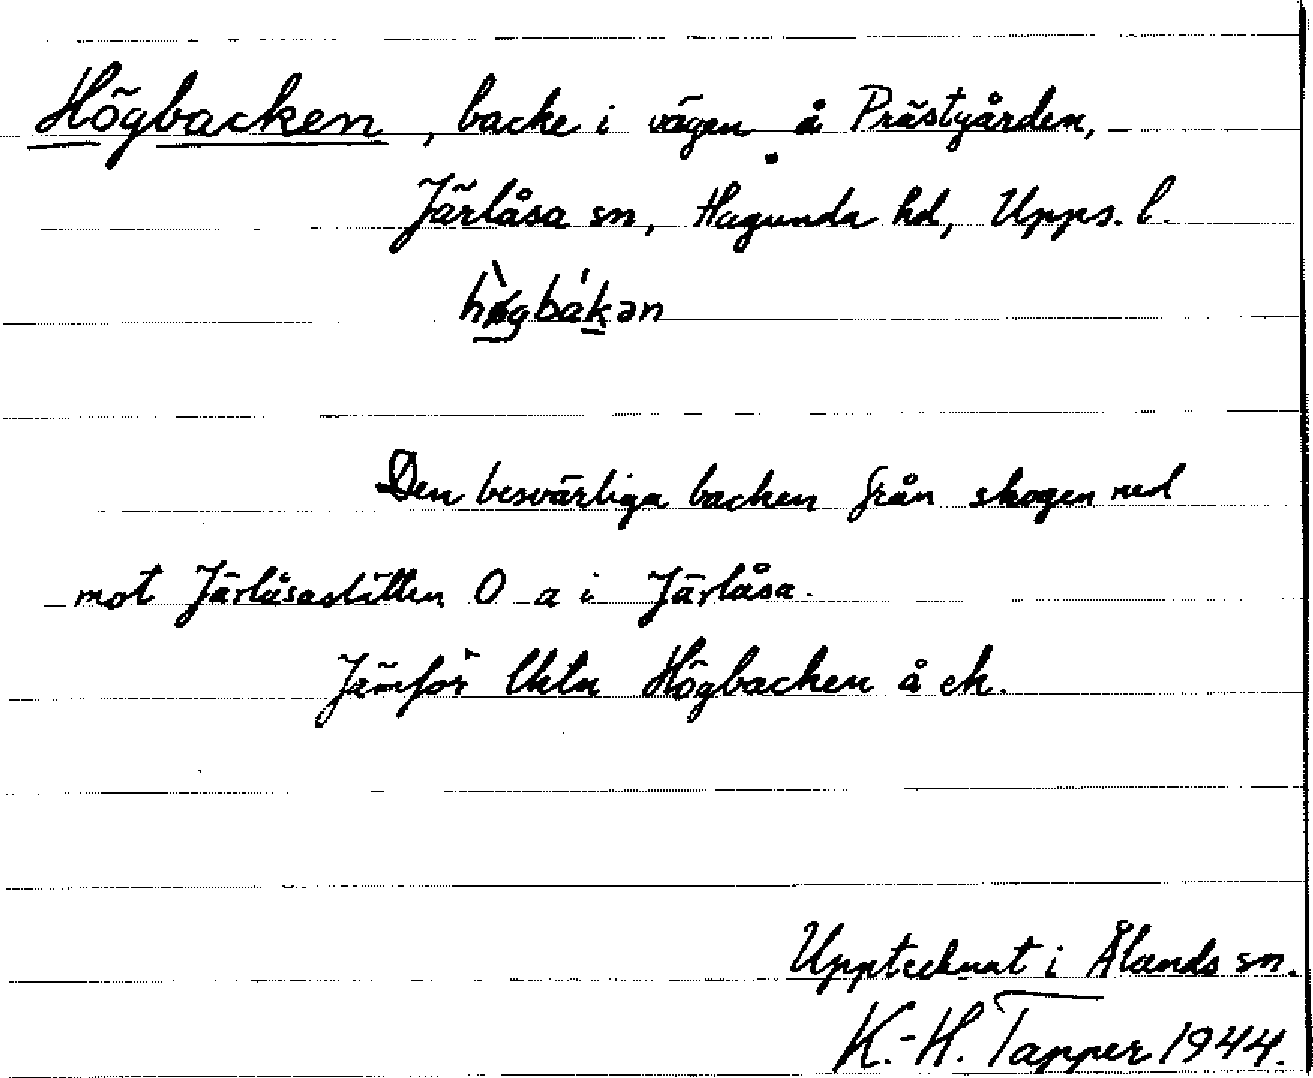 Högbacken, backe i vägen å Prästgården,
Järlåsa sn, Hagunda hd, Upps. l.
hø̀gbákən
Den besvärliga backen från skogen ned
mot Järlåsaslätten O a i Järlåsa.
Jämför Högbacken å ek.
Upptecknat i Ålands sn.
K.-H. Tapper 1944.